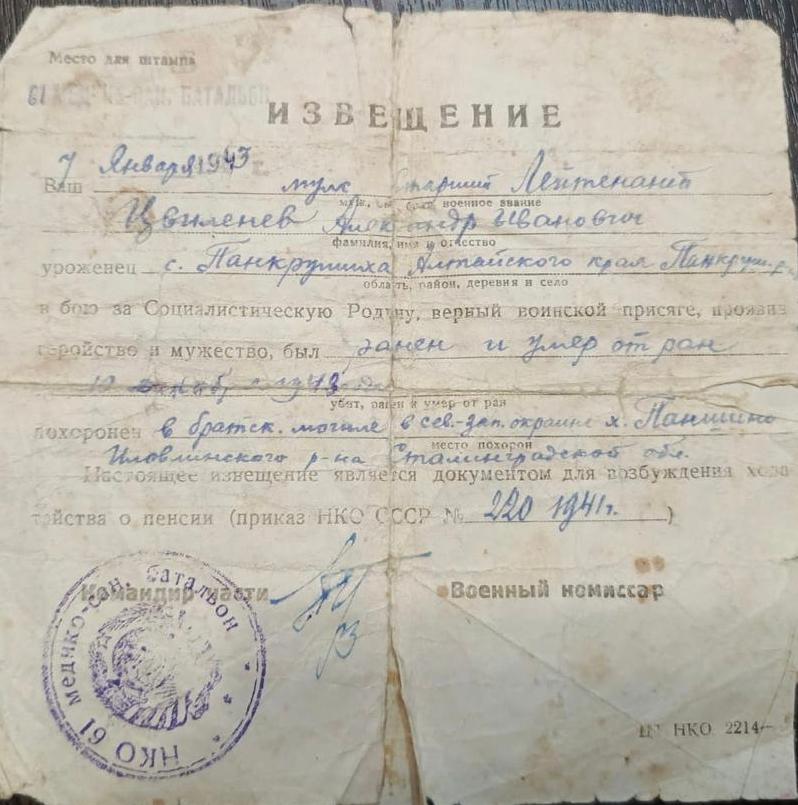 Место для штампа
61 МЕДИКО-САН. БАТАЛЬОН
ИЗВЕЩЕНИЕ
7 Января 1943 г.
Ваш муж Старший Лейтенант
муж, сын, брат, военное звание
Цвиленев Александр Иванович
фамилия, имя и отчество
уроженец с. Панкрушиха Алтайского края
область, район, деревня и село
в бою за Социалистическую Родину, верный воинской присяге, проявив
геройство и мужество, был ранен и умер от ран
убит, ранен и умер от ран
похоронен в братск. могиле в сев.-зап. окраине х. Паншино
место похорон
Иловлинского р-на Сталинградской обл.
Настоящее извещение является документом для возбуждения хода
тайства о пенсии (приказ НКО СССР № 220 1941г.)
Командир части
Военный комиссар
НКО 61 медико-сан. батальон
НКО 2214